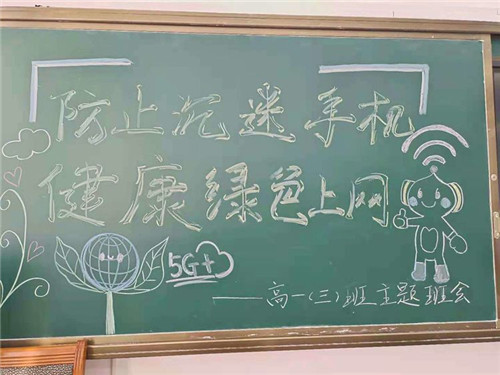 防止沉迷手机
健康绿色上网
5G+
——高一(三)班主题班会